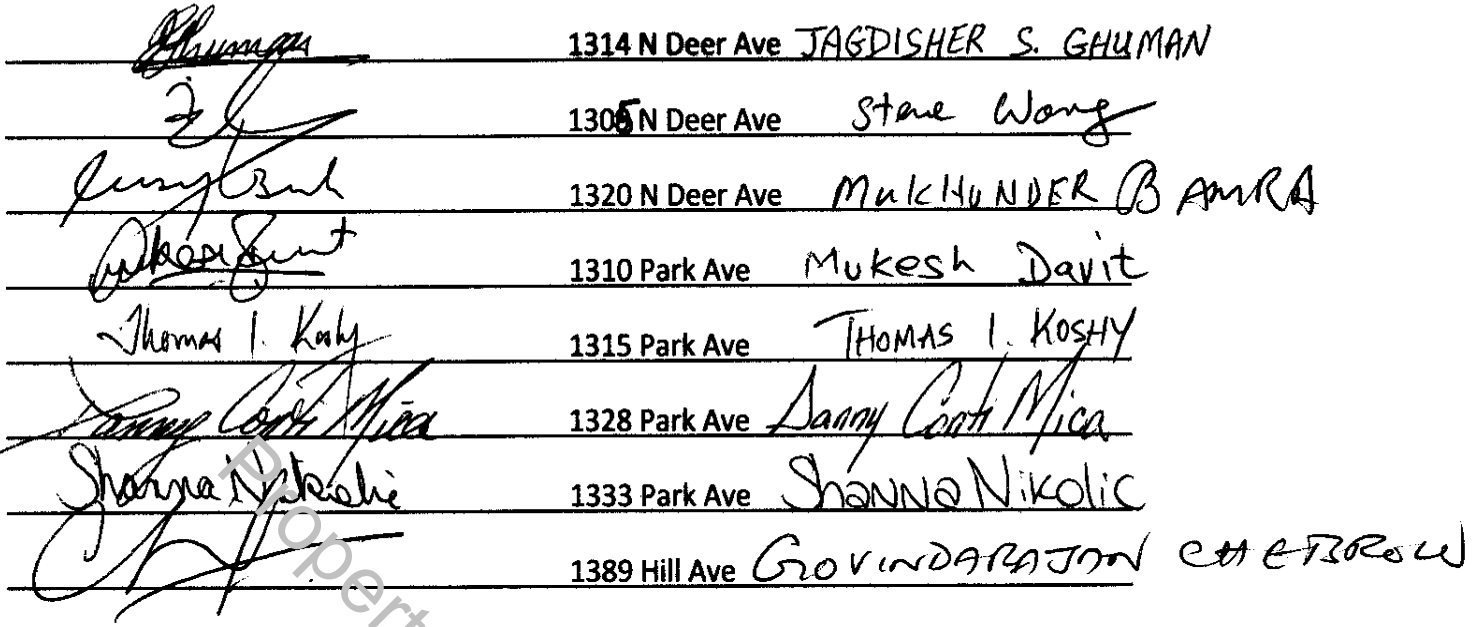 1314 N Deer Ave JAGDISHER S. GHUMAN
1305 N Deer Ave Steve Wong
1320 N Deer Ave MUKHUNDER BAMRA
1310 Park Ave Mukesh Davit
Thomas I. Koshy 1315 Park Ave THOMAS I. KOSHY
Danny Conti Mica 1328 Park Ave Danny Conti Mica
Shanna Nikolic 1333 Park Ave Shanna Nikolic
1389 Hill Ave GOVINDARAJAN CHEBROLU
Propert